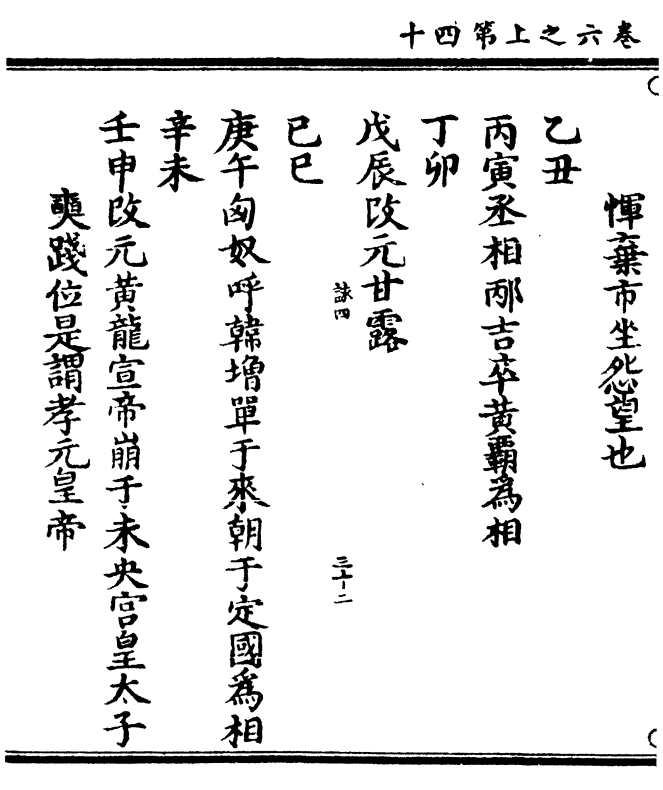 卷六之上第四十
惲棄市坐怨望也
乙丑
丙寅丞相邴吉卒黃霸為相
丁卯
戊辰改元甘露
詠四
三十二
己巳
庚午匈奴呼韓增單于來朝于定國為相
辛未
壬申改元黃龍宣帝崩于未央宮皇太子
奭踐位是謂孝元皇帝